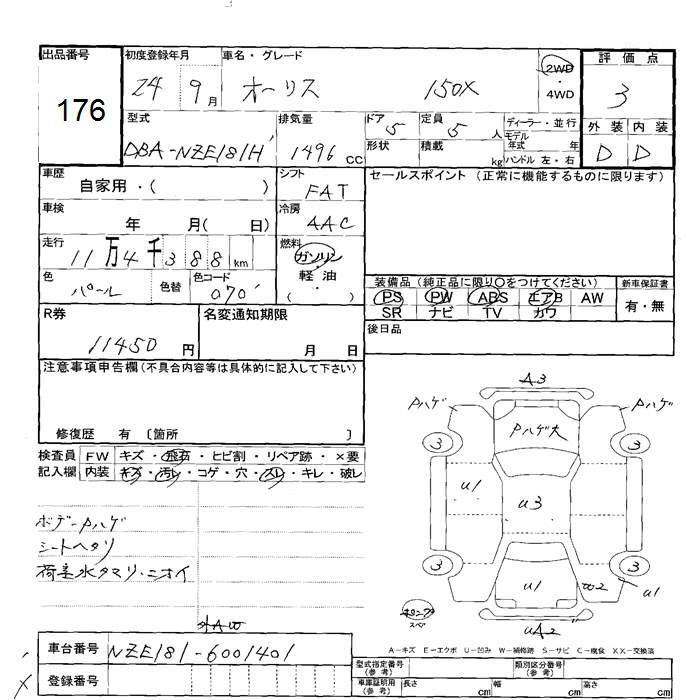 出品番号 初度登録年月 車名・グレード 評価点
176 24 9月 オーリス 150X 2WD・4WD 3
型式 排気量 ドア 定員 ディーラー・並行 外装 内装
DBA-NZE181H 1496 CC 5 5人 モデル年式 年 D D
形状 積載 kg ハンドル 左・右
車歴 シフト セールスポイント (正常に機能するものに限ります)
自家用・( ) FAT
車検 冷房
年 月( 日) AAC
走行 燃料
11万4千388km ガソリン・軽油
色 色替 色コード ( )
パール 070
装備品 (純正品に限り○をつけてください) 新車保証書
PS PW ABS エアB AW 有・無
SR ナビ TV カワ
R券 名変通知期限 後日品
11450円 月 日
注意事項申告欄(不具合内容等は具体的に記入して下さい)
修復歴 有 〔箇所 〕
検査員 FW キズ・飛石・ヒビ割・リペア跡・×要
記入欄 内装 キズ・汚レ・コゲ・穴・スレ・キレ・破レ
ボデーPハゲ
シートヘタリ
荷室水タマリ・ニオイ
A3
Pハゲ Pハゲ
Pハゲ大
3 3
U1 U3
3 3
U1 U2 U1
スペ
UA2
A-キズ E-エクボ U-凹み W-補修跡 S-サビ C-腐食 XX-交換済
車台番号 NZE181-6001401
登録番号
型式指定番号(参考) 類別区分番号(参考)
車庫証明用(参考) 長さ cm 幅 cm 高さ cm